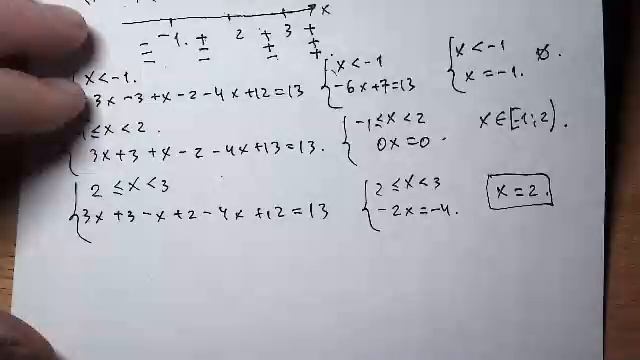 -1. 2 3 x
± ± ±
x < -1.
3x - 3 + x - 2 - 4x + 12 = 13
x < -1
-6x + 7 = 13
x < -1
x = -1.
∅.
1 ≤ x < 2.
3x + 3 + x - 2 - 4x + 13 = 13.
-1 ≤ x < 2
0x = 0.
x ∈ [-1; 2).
2 ≤ x < 3
3x + 3 - x + 2 - 4x + 12 = 13
2 ≤ x < 3
-2x = -4.
x = 2.